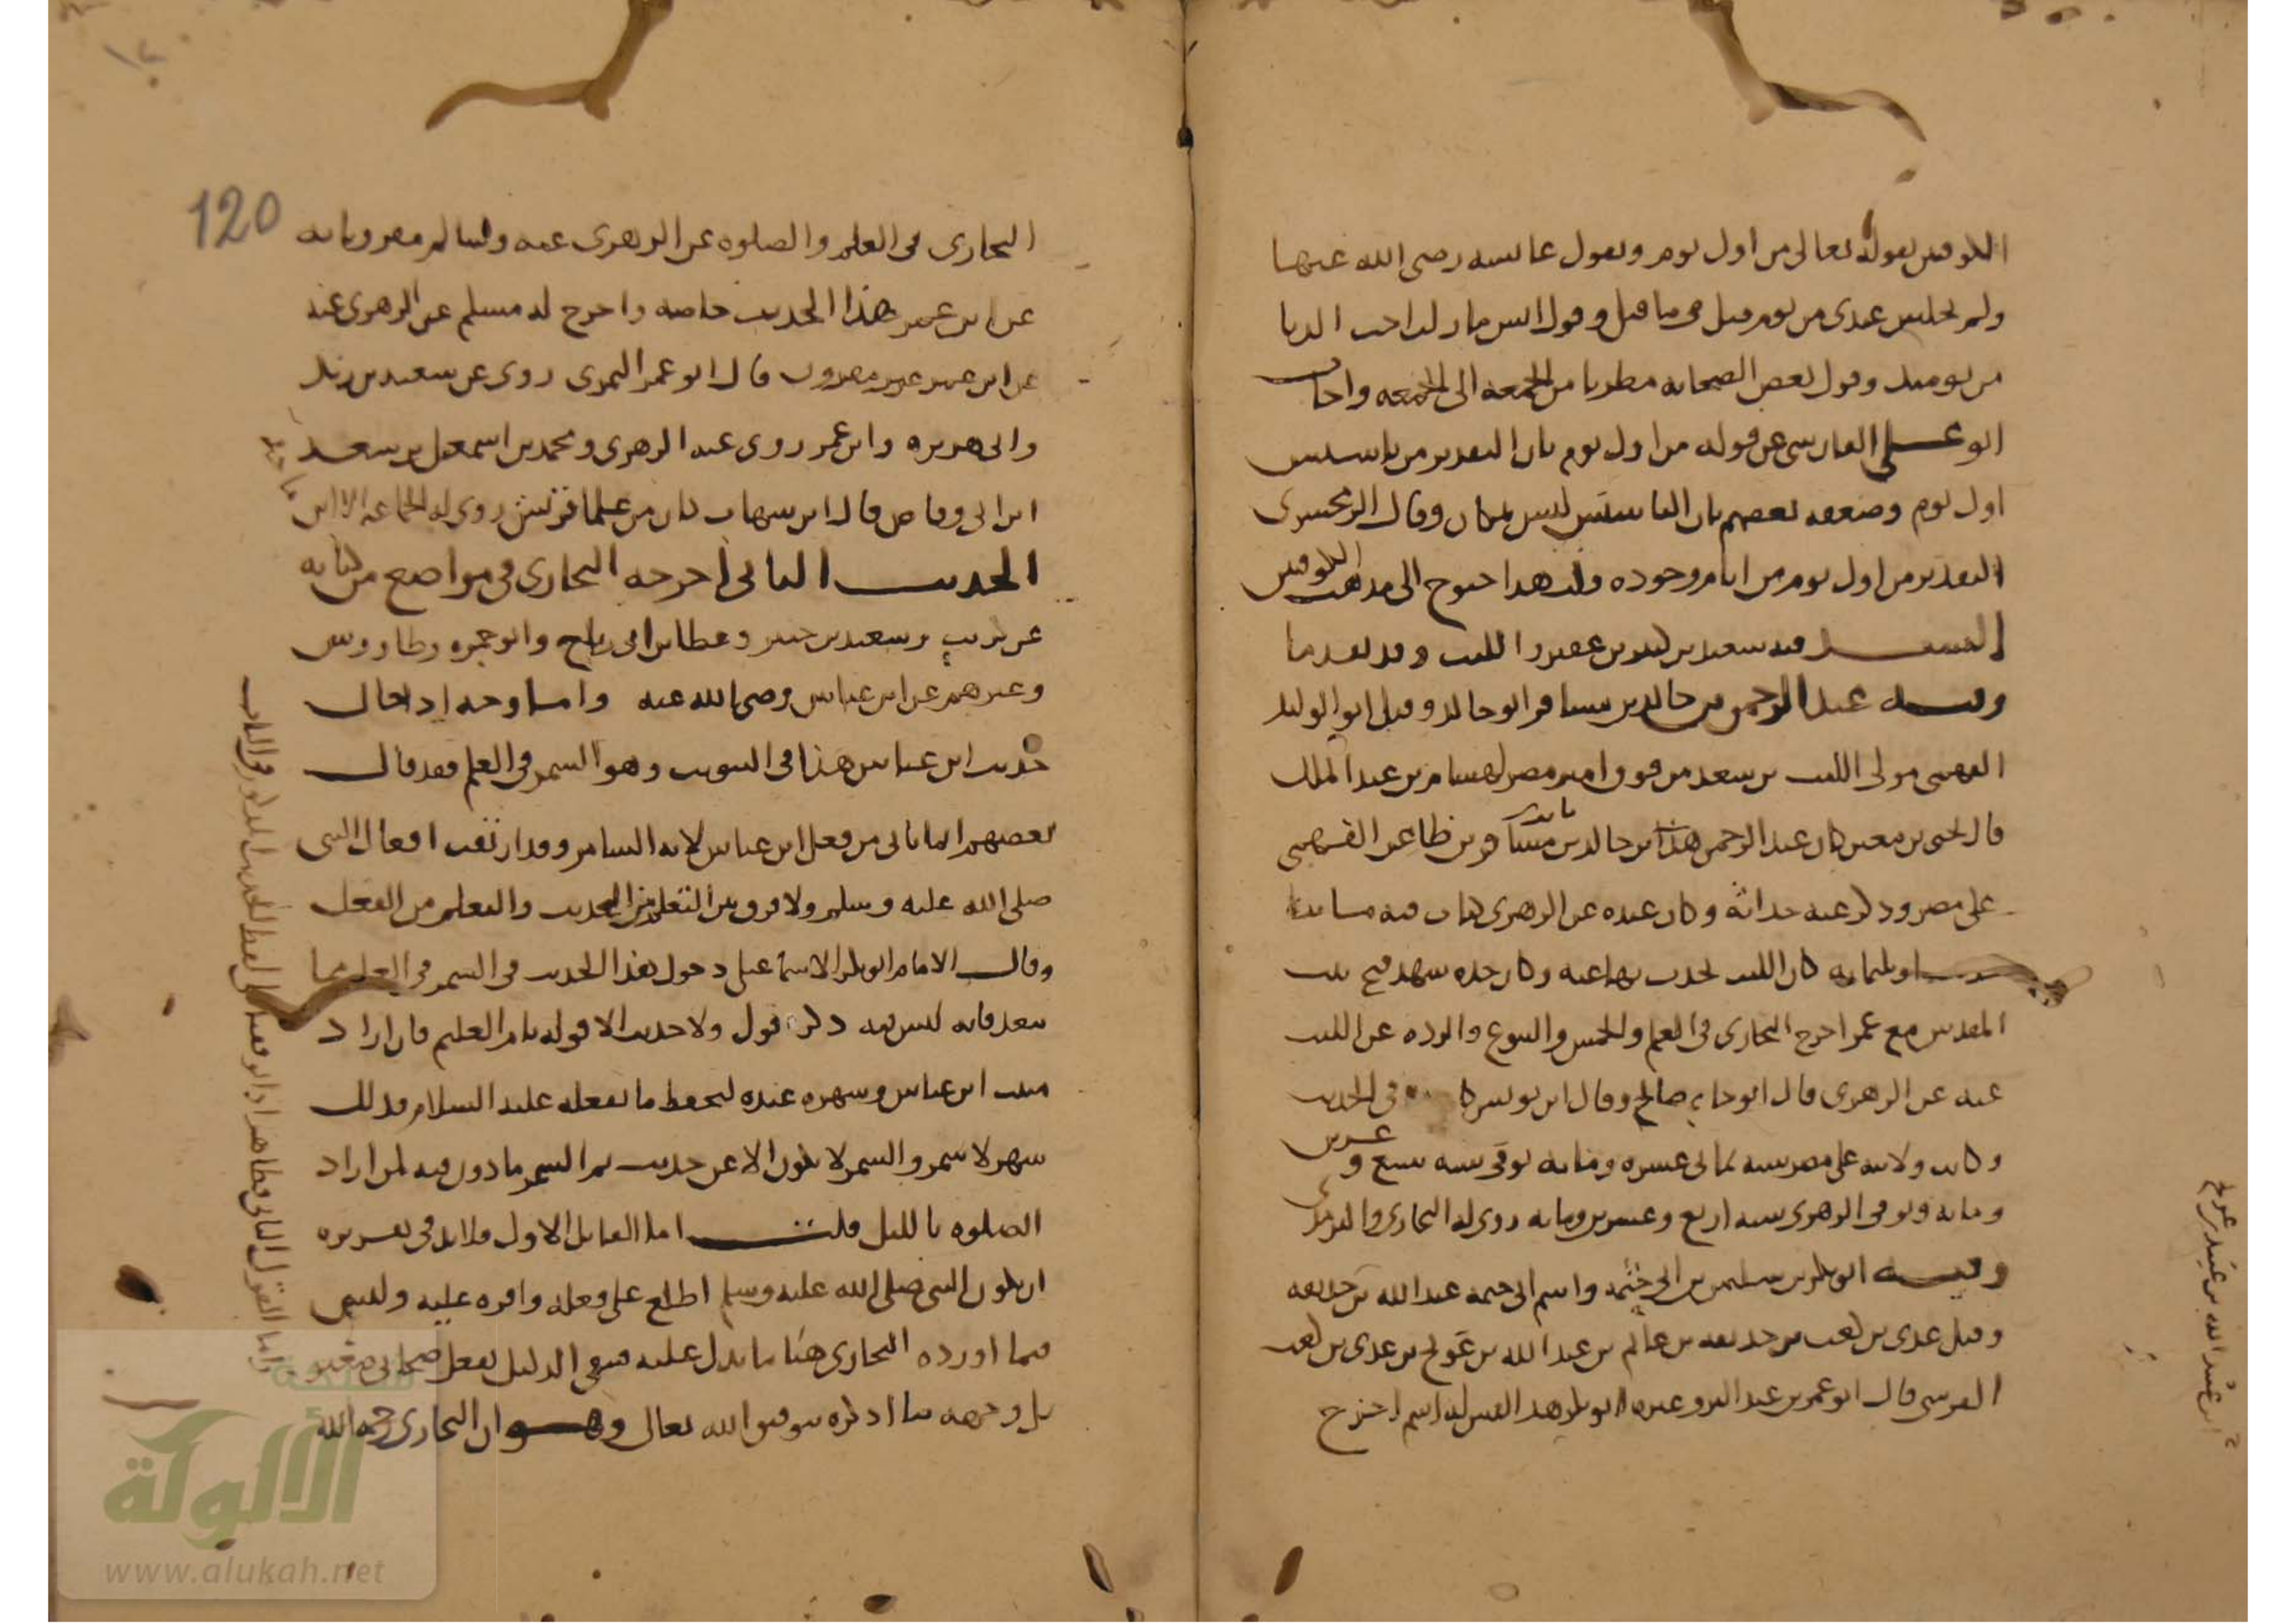 الكوفيين بقوله تعالى من اول يوم وبقول عائشة رضى الله عنها
ولم يجلس عندى من يوم قيل فى ما قيل وقول انس ما زلت احب الدبا
من يومئذ وقول بعض الصحابه مطرنا من الجمعه الى الجمعه واجاب
ابو على الفارسى عن قوله من اول يوم بان التقدير من تاسيس
اول يوم وضعفه بعضهم بان التاسيس ليس بمكان وقال الزمخشرى
التقدير من اول يوم من ايام وجوده وهذا جنوح الى مذهب الكوفيين
فيه سعيد بن كثير بن عفير والليث وقد تقدما
وفيه عبد الرحمن بن خالد بن مسافر ابو خالد وقيل ابو الوليد
الفهمى مولى الليث بن سعد من فوق امير مصر لهشام بن عبد الملك
قال يحيى بن معين كان عبد الرحمن هذا بن خالد بن مسافر بن ظاعن الفهمى
على مصر وذكر عنه حداثة وكان عنده عن الزهرى كتاب فيه مائتا
حديث او ثلثمايه كان الليث يحدث بها عنه وكان جده شهد فتح بيت
المقدس مع عمر اخرج البخارى فى العلم والخمس والبيوع والرده عن الليث
عنه عن الزهرى قال ابو حاتم صالح وقال ابن يونس كان فى الحديث
وكانت ولايته على مصر سنه ثمانى عشره ومايه توفى سنه سبع وعشرين
ومايه وتوفى الزهرى سنه اربع وعشرين ومايه روى له البخارى والترمذى
وفيه ابو بكر بن سليمن بن ابى حثمه واسم ابى حثمه عبد الله بن حذيفه
وقيل عدى بن كعب بن حذيفه بن غانم بن عبد الله بن عويج بن عدى بن كعب
القرشى قال ابو عمر بن عبد البر وغيره ابو بكر هذا ليس له اسم اخرج
ابن عبد الله بن عبيد بن عويج
120
البخارى فى العلم والصلوه عن الزهرى عنه وسالم مقرونا به
عن ابن عمر هذا الحديث خاصه واخرج له مسلم عن الزهرى عنه
عن ابن عمر غير مقرون قال ابو عمر النمرى روى عن سعيد بن زيد
وابى هريره وابن عمر روى عنه الزهرى ومحمد بن اسمعيل بن سعد
ابن ابى وقاص قال ابن شهاب كان من علما قريش روى له الجماعه الا ابن ماجه
الحديث الثانى اخرجه البخارى فى مواضع من كتابه
عن كريب وسعيد بن جبير وعطا بن ابى رباح وابو جمره وطاووس
وغيرهم عن ابن عباس رضى الله عنه واما وجه ادخال
حديث ابن عباس هذا فى التبويب وهو السمر فى العلم فقد قال
بعضهم انما يأتى من فعل ابن عباس لانه السامر وقد ارتقب افعال النبى
صلى الله عليه وسلم ولا فرق بين التعلم من الحديث والتعلم من الفعل
وقال الامام ابو بكر الاسماعيلى دخول هذا الحديث فى السمر فى العلم مما
يبعد فانه ليس فيه ذكر قول ولا حديث الا قوله نام الغليم فان اراد
مبيت ابن عباس وسهره عنده ليحفظ ما يفعله عليه السلام فذلك
سهر لا سمر والسمر لا يكون الا عن حديث ثم السمر ماذون فيه لمن اراد
الصلوه بالليل قلت اما القايل الاول فلابد فى تقريره
ان يكون النبى صلى الله عليه وسلم اطلع على فعله واقره عليه وليس
فيما اورده البخارى هنا ما يدل عليه فبقى الدليل بفعل صحابى صغير
بل وجهه ما اذكره بتوفيق الله تعالى وهو ان البخارى رحمه الله
واما القول الثانى فظاهر اذ ليس لفظ الحديث المذكور فى الباب
شبكة
الألوكة
www.alukah.net